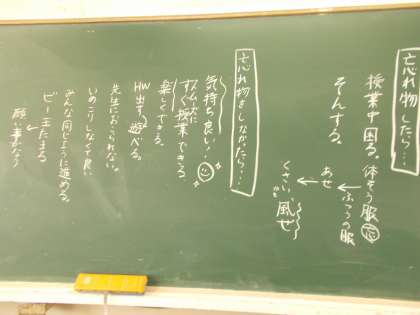 忘れ物したら…
授業中困る。
そんする。
体そう服
←ふつうの服
あせ
←
くさい
風ぜ
忘れ物をしなかったら…
気持ち良い…
スムーズに
すぐ授業できる
楽しくできる。
HW出す→遊べる。
先生におこられない。
いのこりしなくて良い
みんな同じように進める。
ビー玉たまる
←
願い事かなう